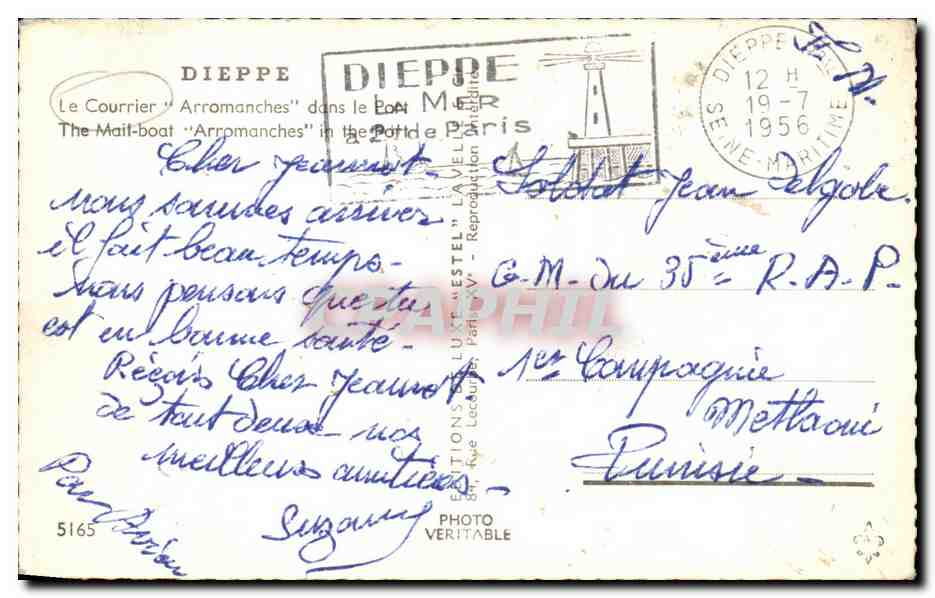 DIEPPE
Le Courrier "Arromanches" dans le Port
The Mail-boat "Arromanches" in the Port
DIEPPE
LA MER
à 2h de Paris
DIEPPE
12 H
19-7
1956
SEINE-MARITIME
F. M.
Cher Jeannot.
nous sommes arrivés
il fait beau temps-
nous pensons que tu
est en bonne santé-
Reçois Cher Jeannot
de tout deux nos
meilleurs amitiées-
Suzanne
Par Avion
Soldat Jean
G-M- du 35ème R-A-P-
1er Compagnie
Metlaoui
Tunisie-
EDITIONS DE LUXE "ESTEL" LAVELLE
84, Rue Lecourbe, Paris XVe - Reproduction interdite
CPAPHIL
5165
PHOTO
VERITABLE